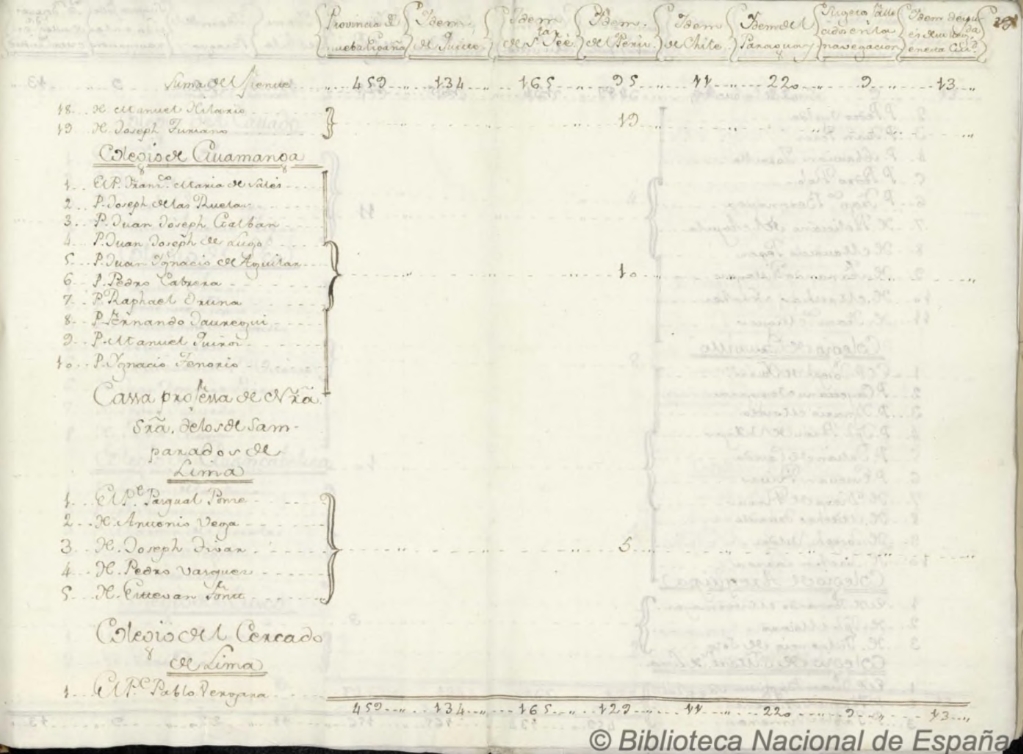 Provincia de nueba España Idem de Quito Idem de Sta Feé Idem del Perú Idem de Chile Idem del Paraguay navegacion
Suma del frente 459 134 165 95 11 220 9 13
18. H. Manuel Hilario
19. H. Joseph Juriano 19
Colegio de Guamanga
1. El P. Franco. Maria de Sales
2. P. Joseph de las Ruela
3. P. Juan Joseph Galban
4. P. Juan Joseph de Lugo
5. P. Juan Ygnacio de Aguilar
6. P. Pedro Cabrera 10
7. P. Raphael Oruna
8. P. Fernando Jauregui
9. P. Manuel Quiros
10. P. Ygnacio Tenorio
Cassa professa de Nrã
Srã. delos de Sam-
parados de
Lima
1. El Pe. Pasqual Ponce
2. H. Antonio Vega
3. H. Joseph 5
4. H. Pedro Vasquez
5. H. Estevan
Colegio del Cercado
de Lima
1. El Pe Pablo Vergara
459 134 165 129 11 220 9 13
© Biblioteca Nacional de España